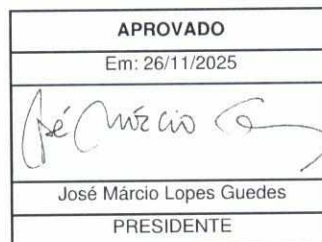 APROVADO
Em: 26/11/2025
José Márcio
José Márcio Lopes Guedes
PRESIDENTE